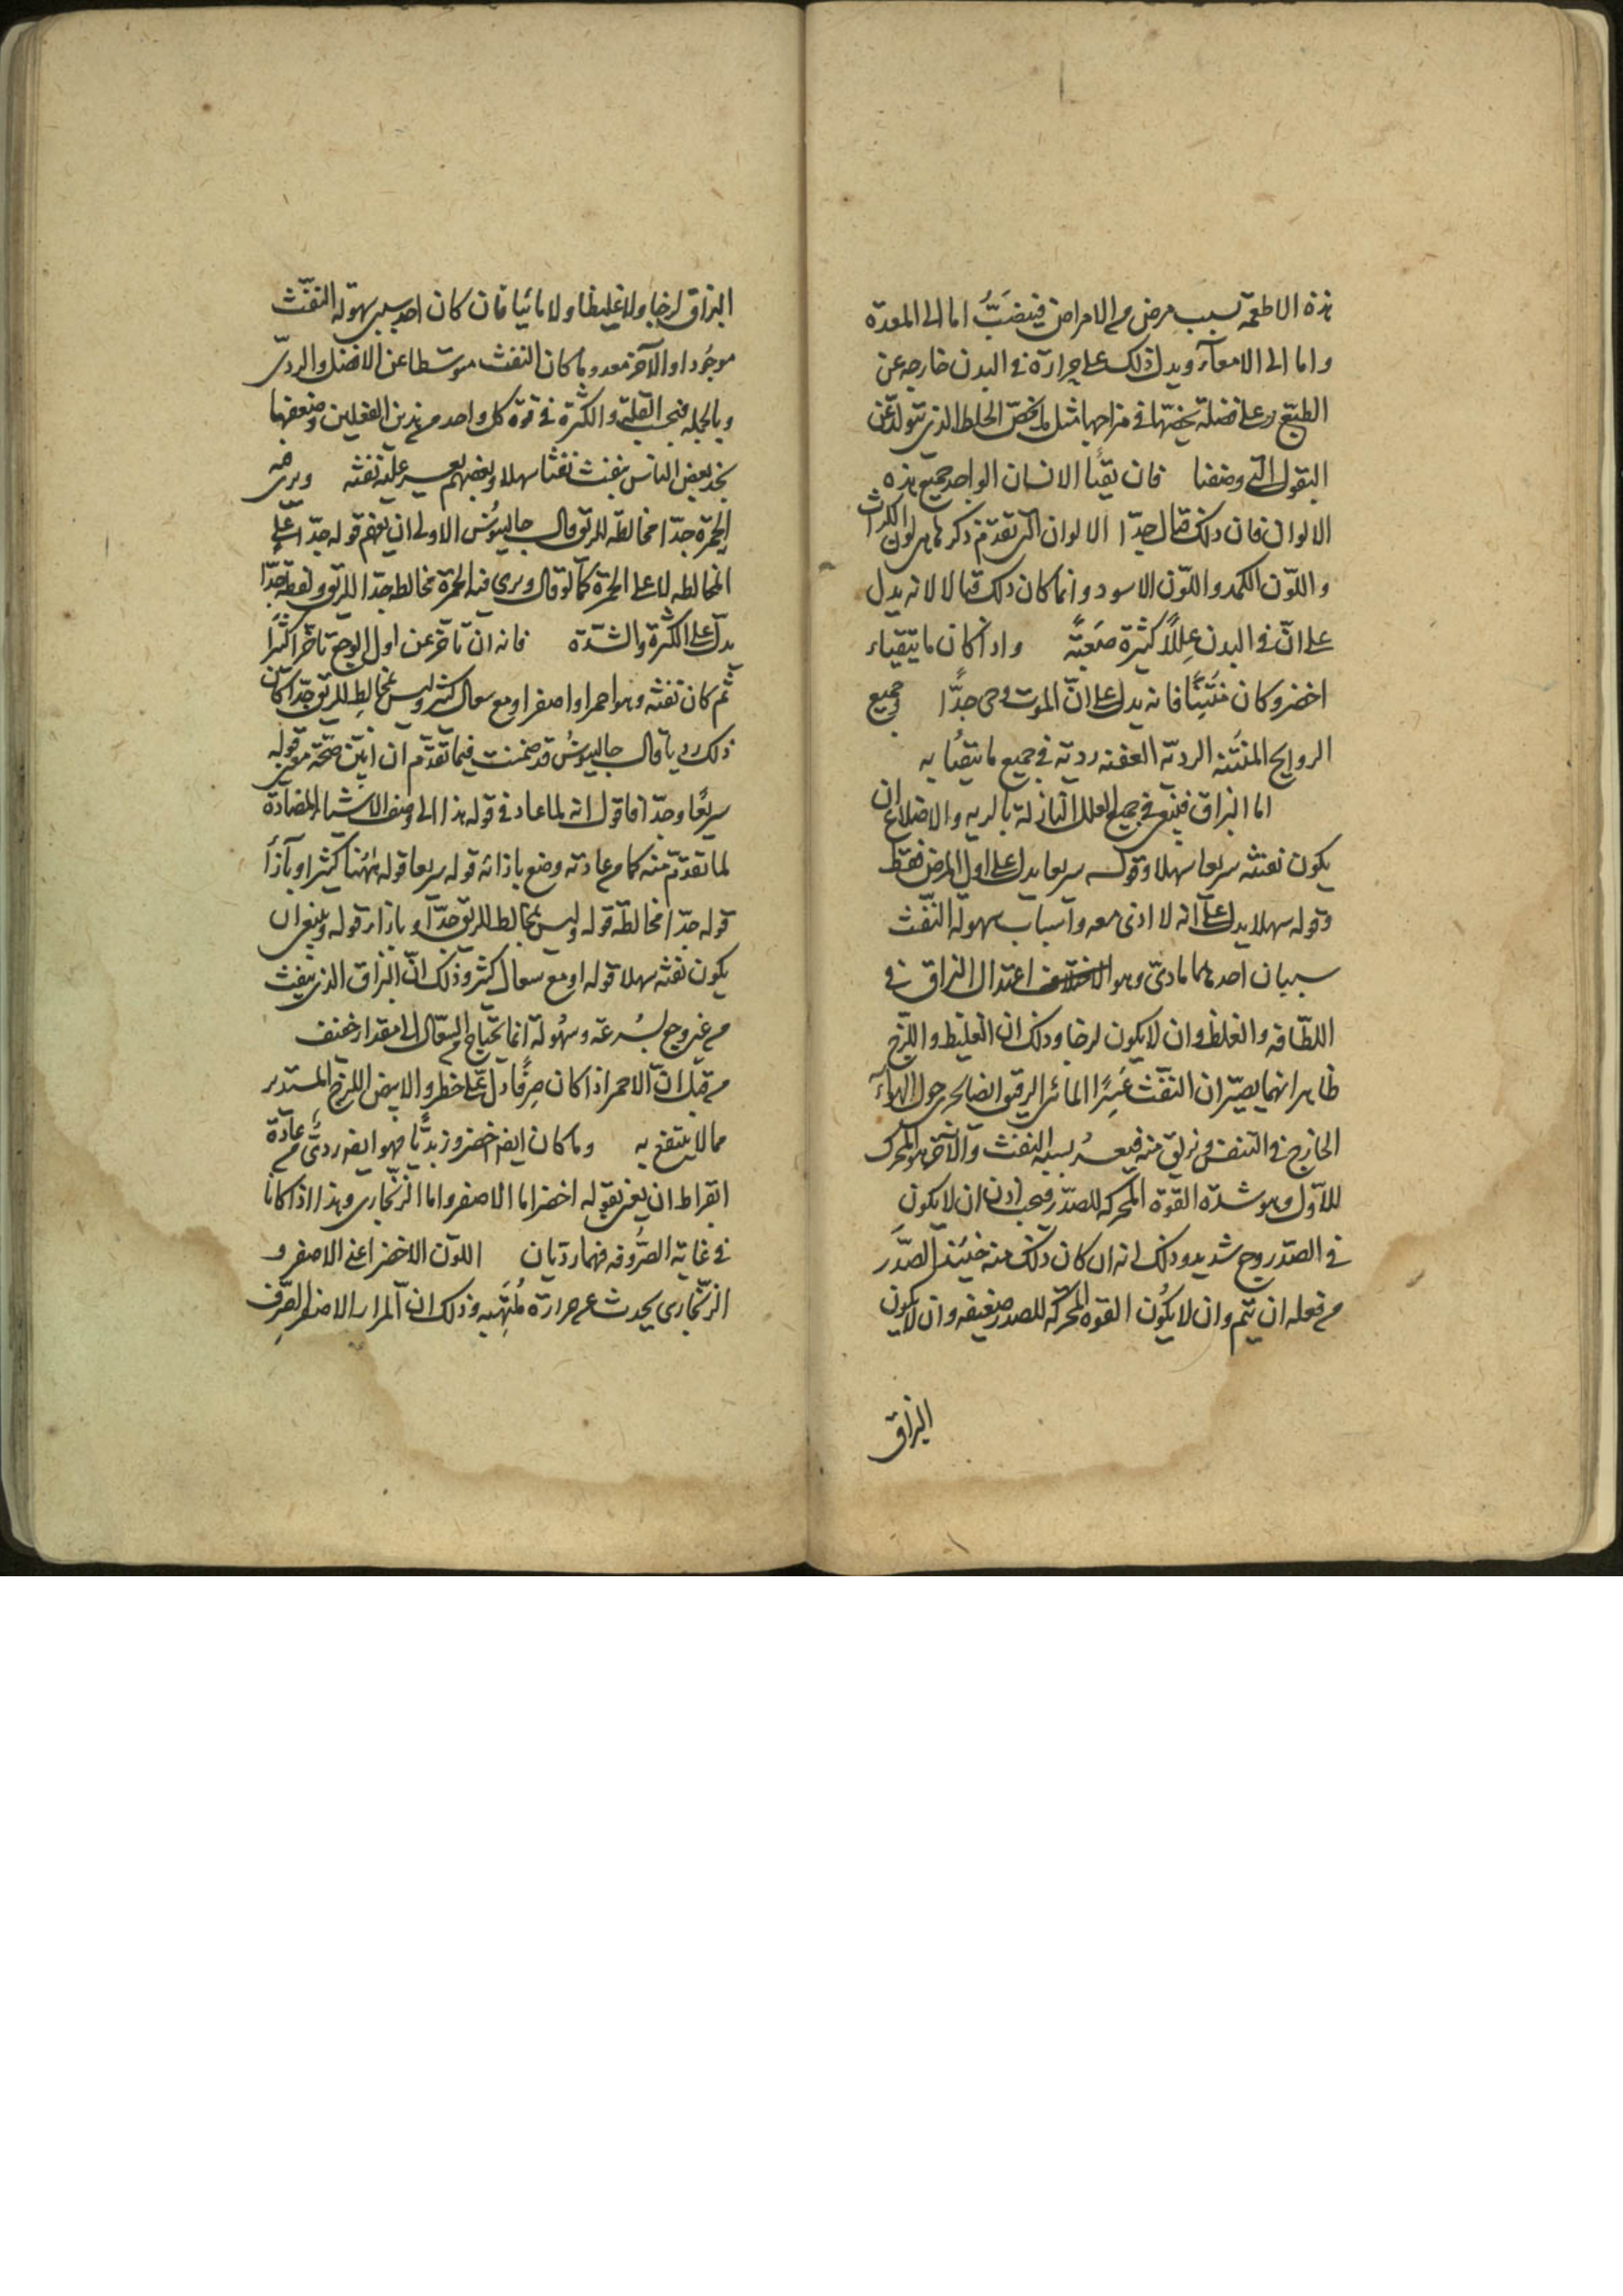 هذه الاطعمة بسبب مرض من الامراض فينصَبُّ اما الى المعدة
واما الى الامعآء ويدل ذلك على حرارة فى البدن خارجه عن
الطبع وعلى فضلة يخصّها فى مزاجها مثل ما يخصّ الخلط الذى يتولد عن
البقول التى وصفنا فان يقيأ الانسان الواحد جميع هذه
الالوان فان ذلك قتال جدّا الالوان التى تقدم ذكرها هى لون الكراث
واللون الكمد واللون الاسود وانما كان ذلك قتالا لانه يدل
على انّ فى البدن عللاً كثيرة صَعبَةً واذا كان ما يتقياء
اخضر وكان مُنتِنًا فانه يدل على انّ الموت وحى جدًّا جميع
الروايح المنتَنه الرديّه العفنه رديّه فى جميع ما يتقيُأ به
اما البزاق فينبغى فى جميع العلل النازلة بالريه والاضلاع ان
يكون نفثه سريعا سهلا وقوله سريعا يدل على اول المرض فقط
وقوله سهلا يدل على انه لا اذى معه واسباب سهولة النفّث
سببان احدهما مادىّ وهو اعتدال البزاق فى
اللطّافه والغلظ وان لا يكون لزجا وذلك ان الغليظ واللزج
ظاهر انهما يصيّران النفّث عَسِرًا المائى الرقيق ايضا يجرى حول الهوآء
الخارج فى التنفس ويزلق منه فيعسُر بسببه النفث والآخر هو المحرك
للاوّل وهو شدة القوة المحركة للصدر فيجب اذن ان لا يكون
فى الصدر وجع شديد وذلك انه ان كان ذلك منه حينئذ الصّدَر
من فعله ان يتم وان لا يكُون القوه المحركة للصدر ضعيفه وان لا يكون
البزاق
البزاق لزجا ولا غليظا ولا مائيا فان كان احد سببى سهولة النفّث
موجُودا والآخر معدوما كان النفث متوسّطا عن الافضل والردىّ
وبالجمله فبحسب القلّة والكثرة فى قوة كل واحد من هذين الفعلين وضعفها
نجد بعض الناس ينفث نفثا سهلا وبعضهم يعسر عليه نفثه ويرى فيه
الحمرة جدّا مخالطه للريق قال جالينوُس الاولى ان يفهم قوله جدّا على
المخالطه لا على الحمرة كما لو قال ويرى فيه الحمرة مخالطه جدّا للريق ولفظة جدّا
يدل على الكثرة والشدّة فانه ان تأخر عن اول الوجع تاخرا كثيرًا
ثم كان نفثه وهو احمر او اصفر او مع سعال كثير وليس بمخالِط للريق جدّا كان
ذلك رديا قال جالينوسُ قد ضمنت فيما تقدّم ان ابيّن صحّة معنى قوله
سريعًا وجدّا فاقول انه لما عاد فى قوله هذا الى وصف الاشياء المضادة
لما تقدّم منه كما من عادته وضع بازائه قوله سريعا قوله ههُنا كثيرا وبازاء
قوله جدّا مخالطّه قوله وليس بمخالط للريق جدّا وبازاء قوله وينبغى ان
يكون نفثه سهلا قوله او مع سعال كثير وذلك انّ البزاق الذى ينفث
من غير وجع بسُرعة وسهُولة انما يحتاج من السعّال الى مقدار خفيف
من قبل انّ الاحمر اذا كان صِرفًا دل على خطر والابيض اللزج المستدير
مما لا ينتفع به وما كان ايضا اخضر وزبدَيًّا فهو ايضا ردىّ من عادة
ابقراط ان يعنى بقوله اخضر اما الاصفر واما الزنجّارى وهذا اذا كانا
فى غاية الصُروفه فهما رديان اللون الاخضر اعنى الاصفر و
الزنجّارى يحدث عن حرارة مُلهِبّه وذلك انّ المرار الاصفر الصِّرف